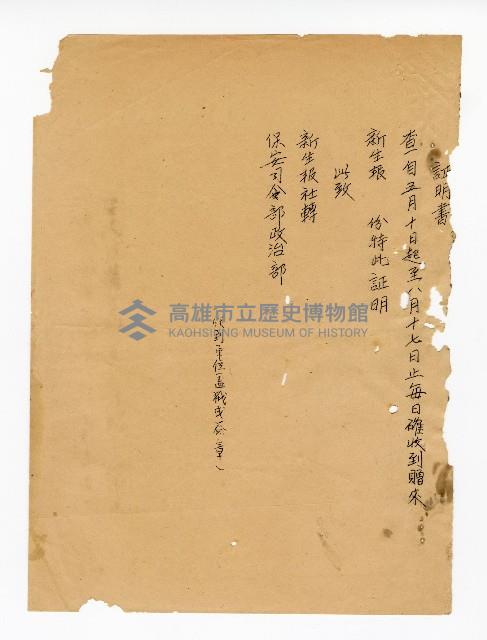 証明書
查自五月十日起至八月十七日止每日確收到贈來
新生報　份特此証明
此致
新生報社轉
保安司令部政治部
(收到單位蓋戳或簽章)
高雄市立歷史博物館
KAOHSIUNG MUSEUM OF HISTORY